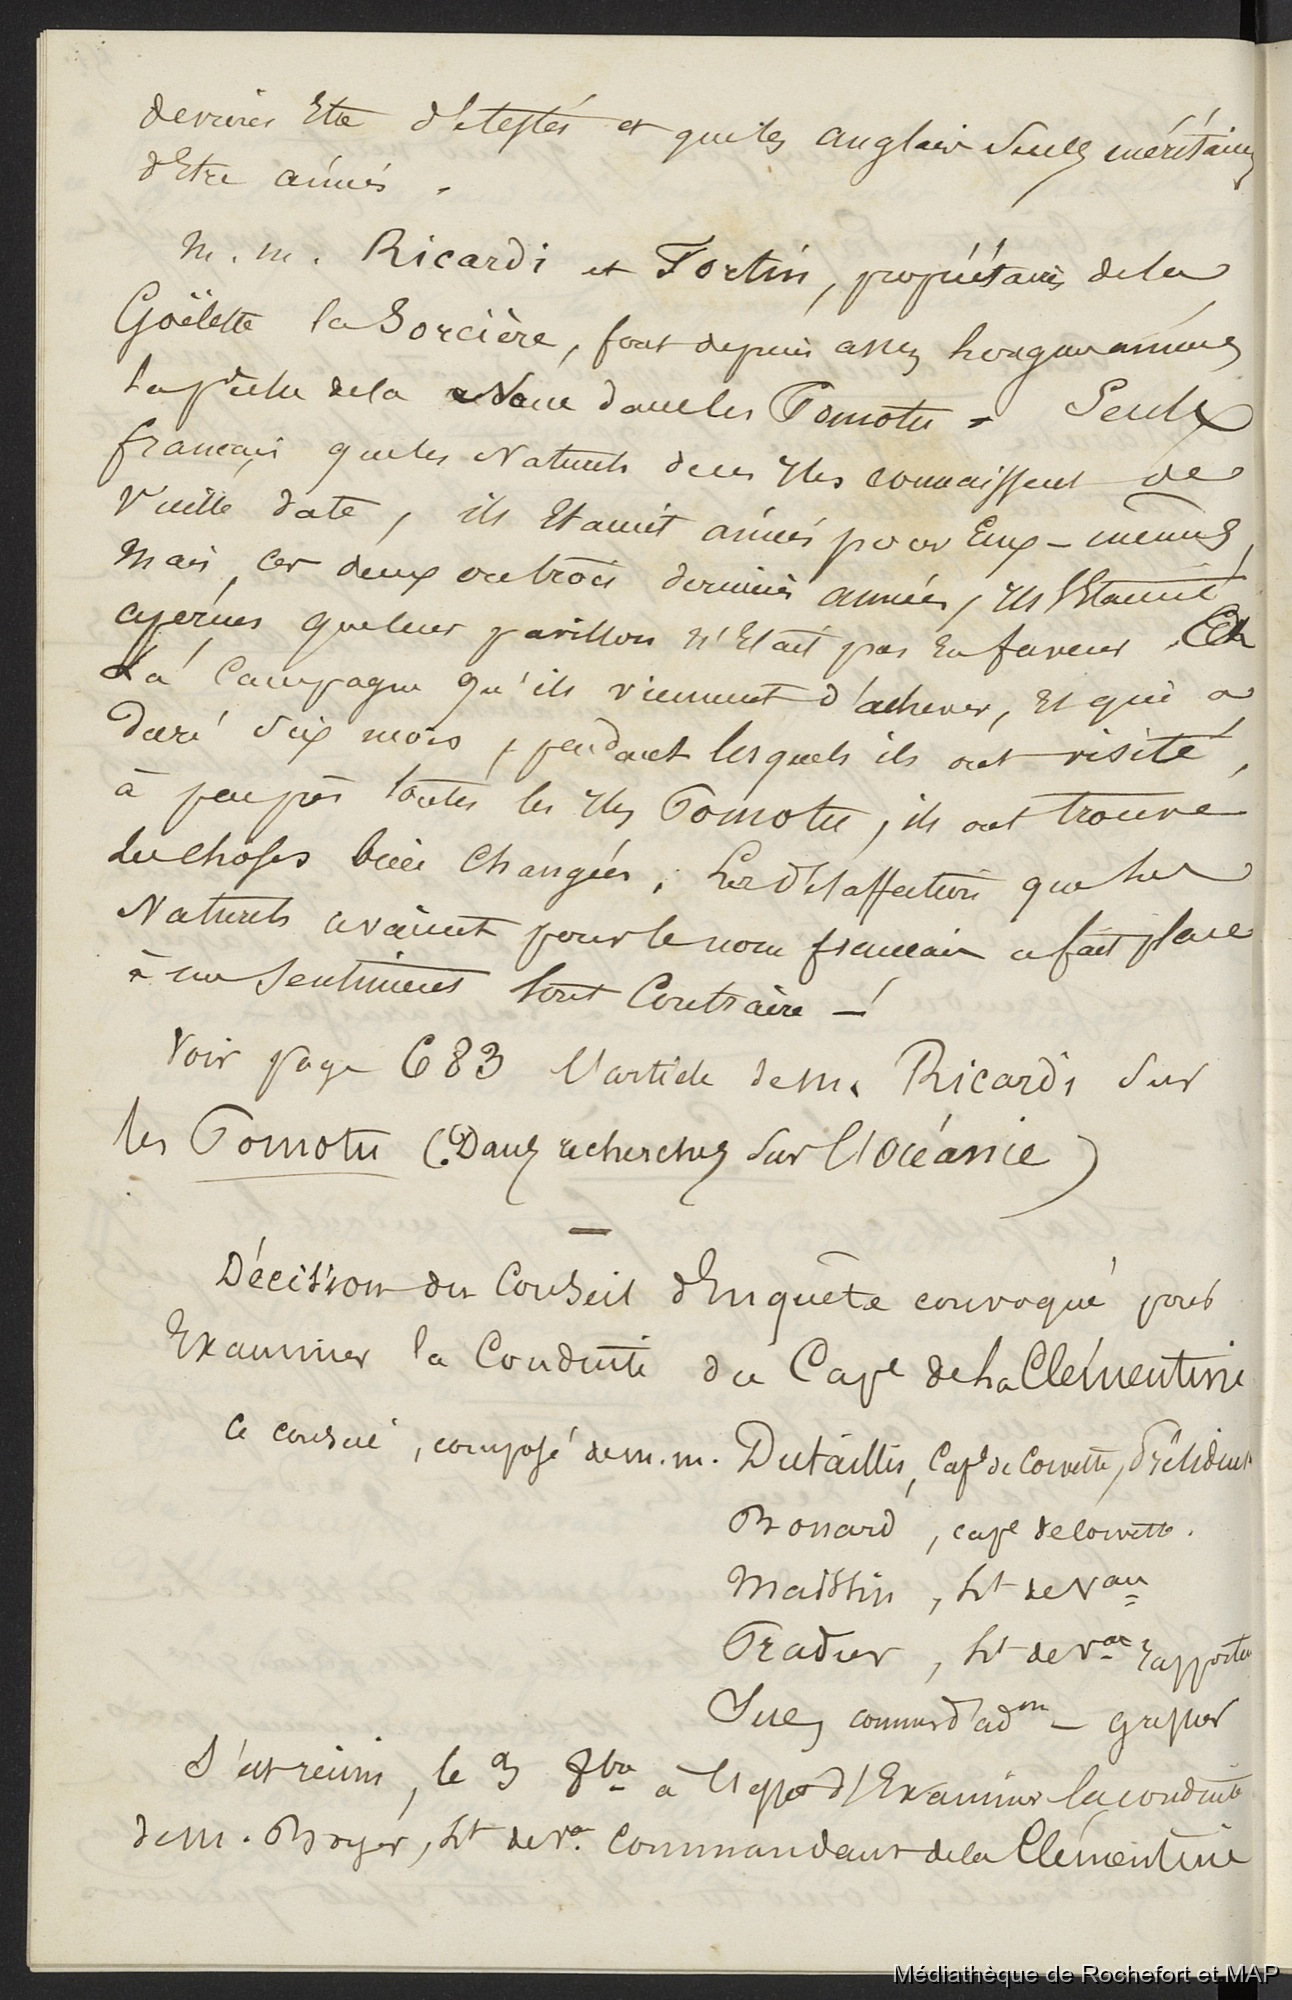 devaient être détestés et que les anglais Seuls méritaient
d'Etre aimés.
M. M. Ricardi et Fortin, propriétaires de la
Goëlette la Sorcière, font depuis assez longues années
la pêche de la Nacre dans les Pomotu. Seuls
français que les Naturels de ces Iles connaissent de
Vieille date, ils Etaient aimés pour Eux-mêmes,
Mais, ces deux ou trois dernières années, ils S'Etaient
aperçus que leur pavillon n'Etait pas En faveur.
La Campagne qu'ils viennent d'achever, Et qui a
duré Six mois, pendant lesquels ils ont visité,
à peu près toutes les Iles Pomotu, ils ont trouvé
les choses bien Changées, La désaffection que les
Naturels avaient pour le nom français a fait place
à un Sentiment tout Contraire —!
Voir page 683 l'article de M. Ricardi Sur
les Pomotu (Dans recherches Sur l'Océanie)
—
Décision du Conseil d'Enquête convoqué pour
Examiner la Conduite du Cape de la Clémentine
Ce conseil, composé de M. M. Dutaillis, Cape de Corvette, Président
Bonard, cape de Corvette.
Maissin, Lt de Vau
Pradier, Lt de Vau rapporteur
commis d'adon — greffier
S'est réuni, le 9 8bre à l'effet d'Examiner la conduite
de M. Boyer, Lt de Vau Commandant de la Clémentine
Médiathèque de Rochefort et MAP